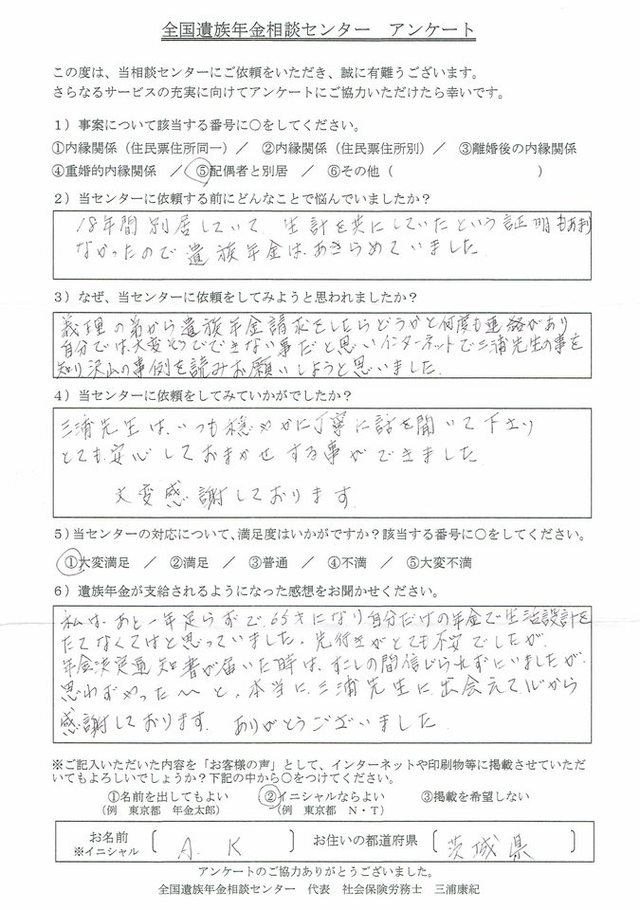 全国遺族年金相談センター　アンケート
この度は、当相談センターにご依頼をいただき、誠に有難うございます。
さらなるサービスの充実に向けてアンケートにご協力いただけたら幸いです。
1）事案について該当する番号に○をしてください。
①内縁関係（住民票住所同一）／　②内縁関係（住民票住所別）／　③離婚後の内縁関係
④重婚的内縁関係　／　⑤配偶者と別居　／　⑥その他（　　　　　　　　）
2）当センターに依頼する前にどんなことで悩んでいましたか？
18年間別居していて 生計を共にしていたという証明もあまり
なかったので遺族年金は、あきらめていました
3）なぜ、当センターに依頼をしてみようと思われましたか？
義理の弟から遺族年金請求をしたらどうかと何度も連絡があり
自分では、大変そうでできない事だと思いインターネットで三浦先生の事を
知り沢山の事例を読みお願いしようと思いました。
4）当センターに依頼をしてみていかがでしたか？
三浦先生は、いつも穏やかに丁寧に話を聞いて下さり
とても安心しておまかせする事ができました
大変感謝しております
5）当センターの対応について、満足度はいかがですか？該当する番号に○をしてください。
①大変満足　／　②満足　／　③普通　／　④不満　／　⑤大変不満
6）遺族年金が支給されるようになった感想をお聞かせください。
私は、あと一年足らずで、65才になり自分だけの年金で生活設計を
たてなくてはと思っていました。先行きがとても不安でしたが、
年金決定通知書が届いた時は、すこしの間信じられずにいましたが、
思わずやった〜と、本当に三浦先生に出会えて心から
感謝しております。ありがとうございました
※ご記入いただいた内容を「お客様の声」として、インターネットや印刷物等に掲載させていただ
いてもよろしいでしょうか？下記の中から○をつけてください。
①名前を出してもよい　②イニシャルならよい　③掲載を希望しない
（例　東京都　年金太郎）　（例　東京都　N・T）
お名前　A. K　お住いの都道府県　茨城県
※イニシャル
アンケートのご協力ありがとうございました。
全国遺族年金相談センター　代表　社会保険労務士　三浦康紀